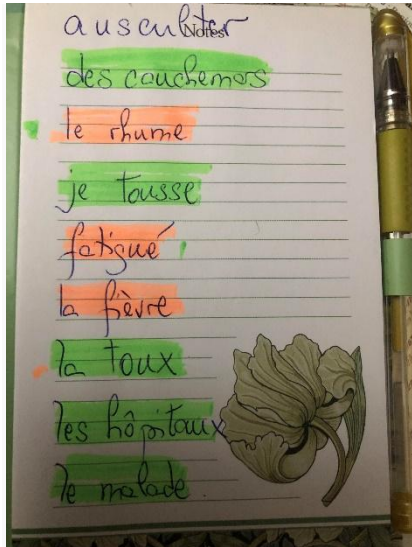 ausculter
Notes
des cauchemars
le rhume
je tousse
fatigué
la fièvre
la toux
les hôpitaux
le malade.